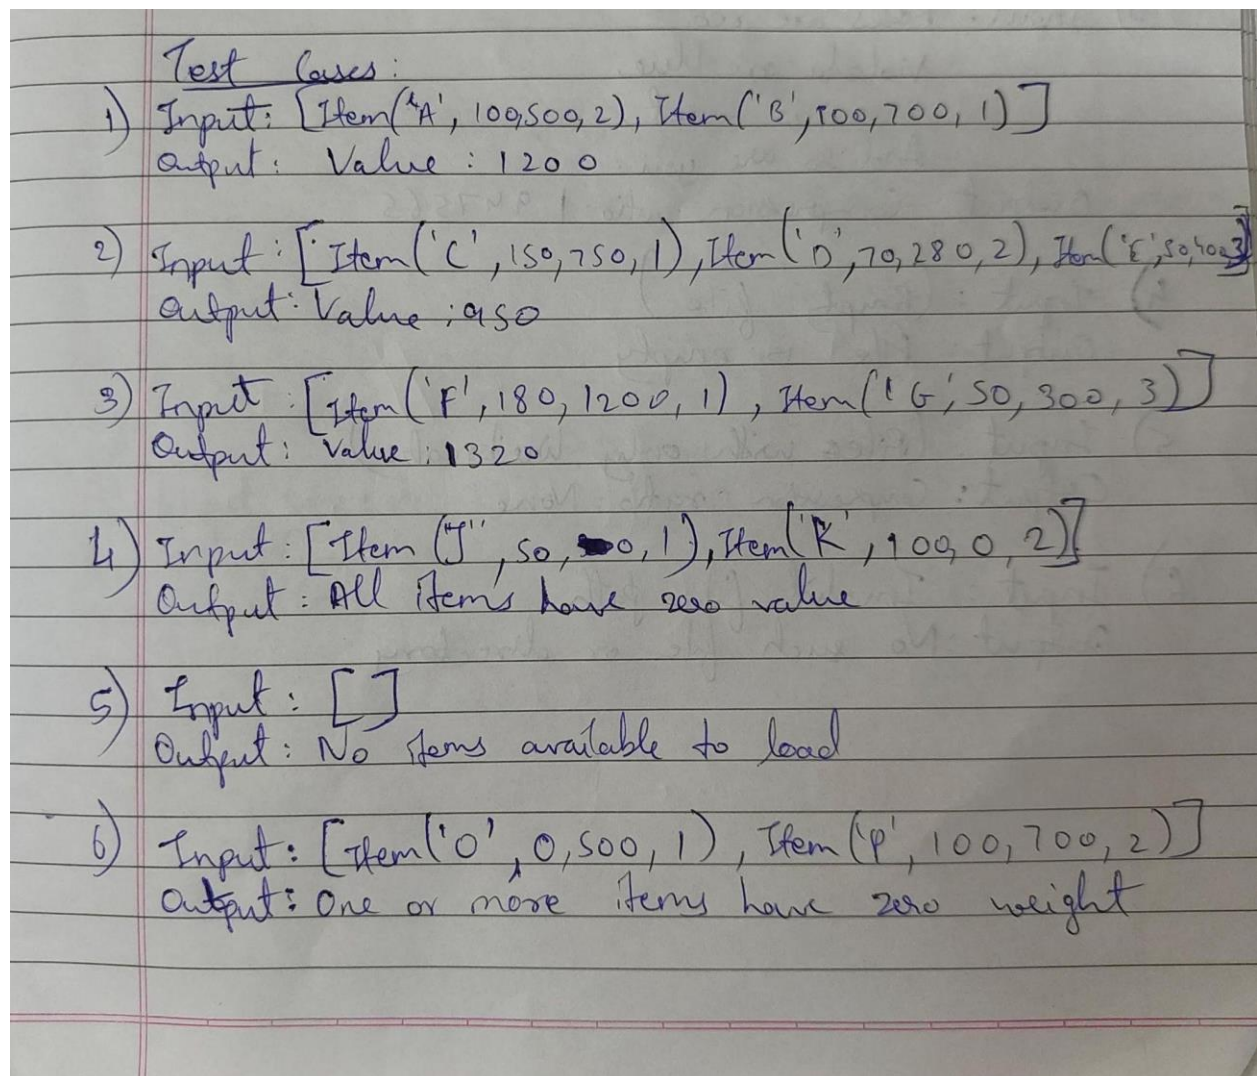 Test Cases:
1) Input: [Item('A', 100,500,2), Item('B', 100,700,1)]
Output: Value: 1200
2) Input: [Item('C', 150,750,1), Item('D', 70,280,2), Item('E', 50,400,3)]
Output: Value: 950
3) Input: [Item('F', 180, 1200, 1), Item('G', 50, 300, 3)]
Output: Value: 1320
4) Input: [Item('J', 50, 0, 1), Item('K', 100, 0, 2)]
Output: All items have zero value
5) Input: []
Output: No items available to load
6) Input: [Item('O', 0, 500, 1), Item('P', 100, 700, 2)]
Output: One or more items have zero weight